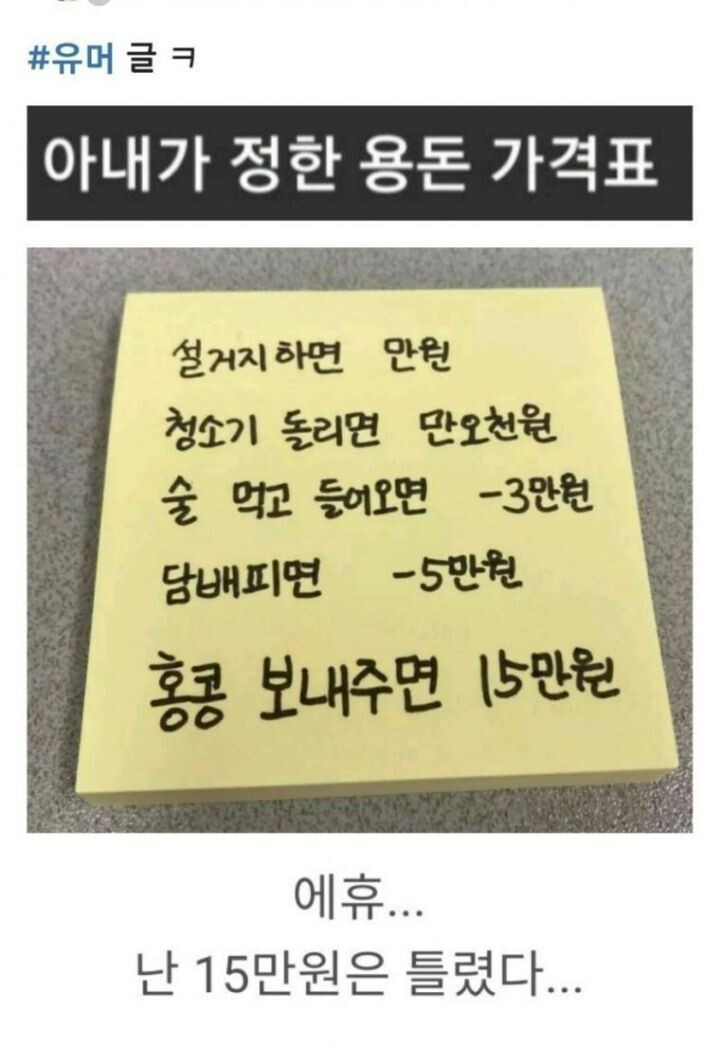 #유머 글 ㅋ
아내가 정한 용돈 가격표
설거지하면 만원
청소기 돌리면 만오천원
술 먹고 들어오면 -3만원
담배피면 -5만원
홍콩 보내주면 15만원
에휴...
난 15만원은 틀렸다...